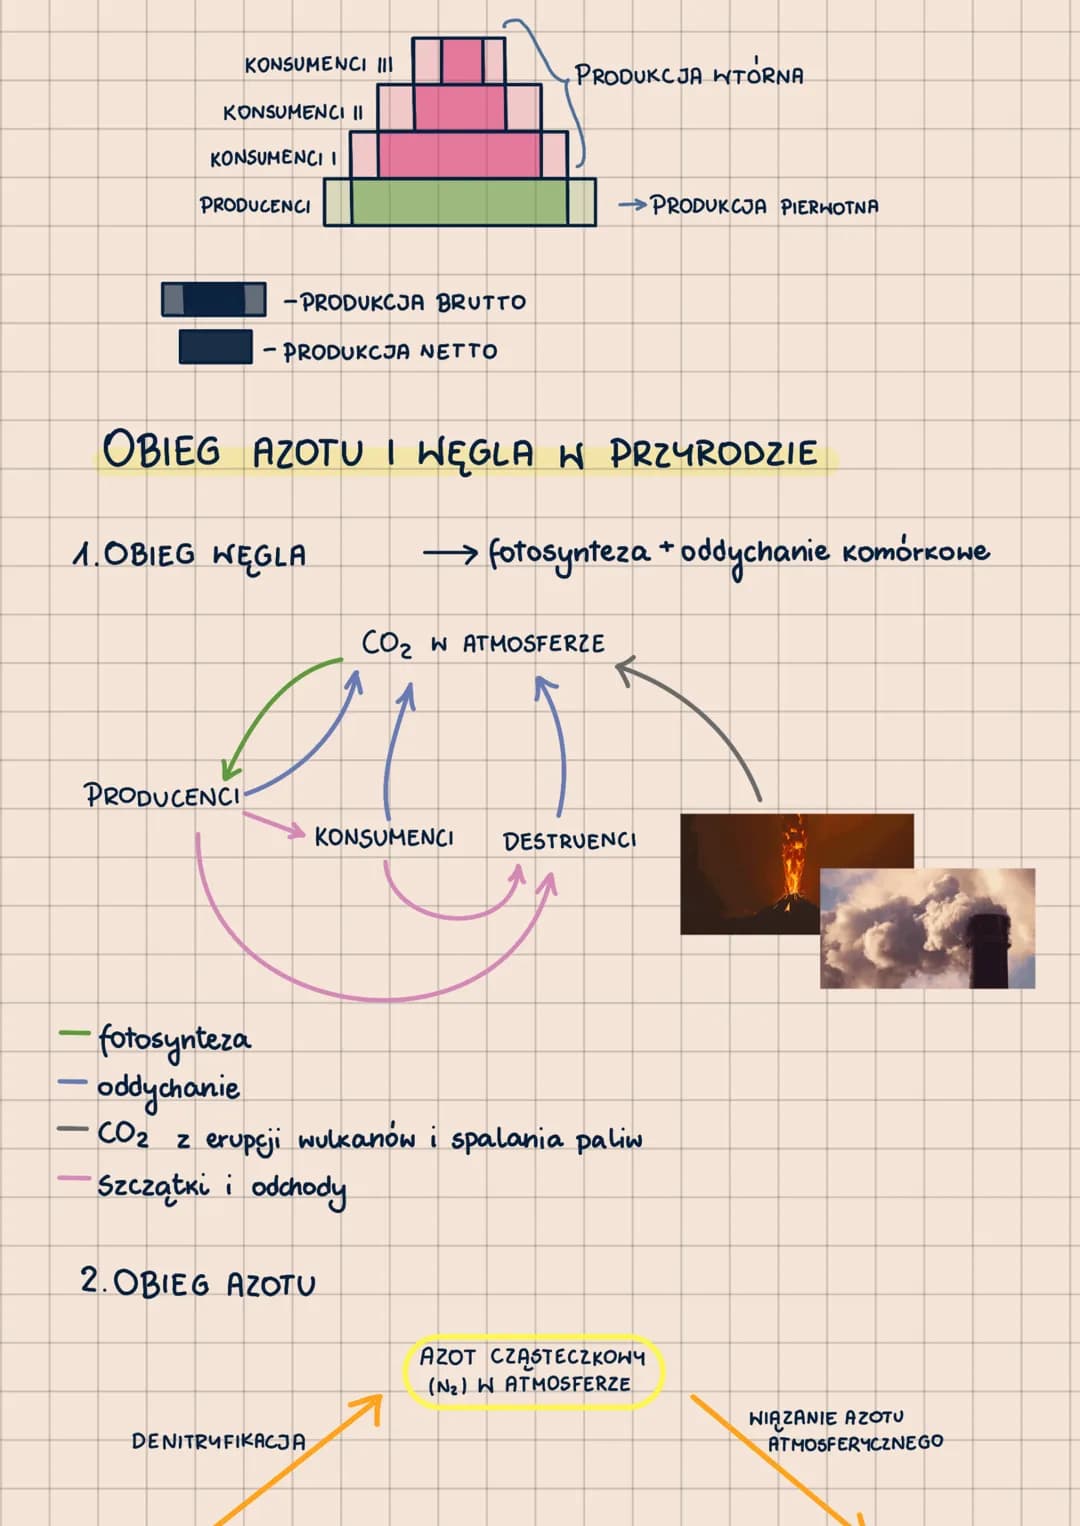 KONSUMENCI III
PRODUKCJA WTÓRNA
KONSUMENCI II
KONSUMENCI I
PRODUCENCI
→ PRODUKCJA PIERWOTNA
- PRODUKCJA BRUTTO
- PRODUKCJA NETTO
OBIEG AZOTU I WĘGLA W PRZYRODZIE
1. OBIEG WĘGLA → fotosynteza + oddychanie komórkowe
CO₂ W ATMOSFERZE
PRODUCENCI
KONSUMENCI
DESTRUENCI
fotosynteza
oddychanie
CO₂ z erupcji wulkanów i spalania paliw
szczątki i odchody
2. OBIEG AZOTU
AZOT CZĄSTECZKOWY
(N₂) W ATMOSFERZE
DENITRYFIKACJA
WIĄZANIE AZOTU
ATMOSFERYCZNEGO